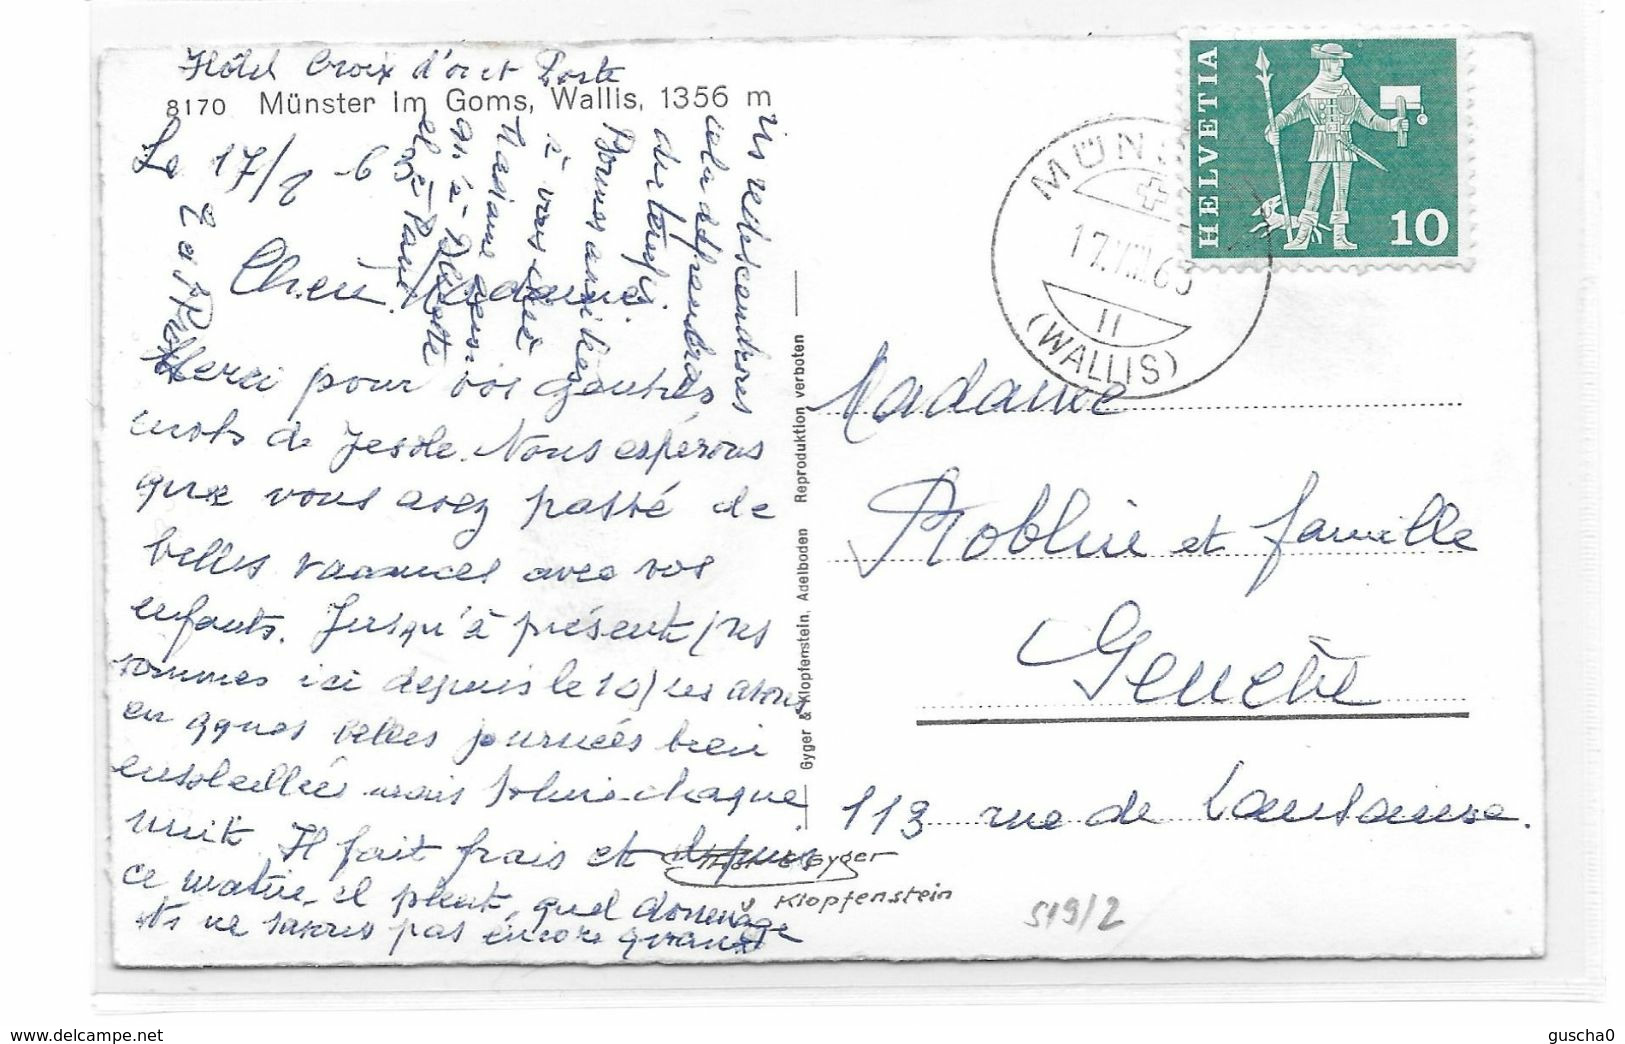 Hôtel Croix d'or et Poste
8170 Münster im Goms, Wallis, 1356 m
Le 17/8 - 63
Chère Madame
Merci pour vos gentils
mots de Jesole. Nous espérons
que vous avez passé de
belles vacances avec vos
enfants. Jusqu'à présent (ns
sommes ici depuis le 10) ns avons
eu qques belles journées bien
ensoleillées mais pluie chaque
nuit. Il fait frais et depuis
ce matin il pleut, quel dommage
Ns ne savons pas encore quand
ns redescendrons
cela dépendra
du temps.
Bonnes amitiés
à vous
Madame
et à
HELVETIA
10
MÜNSTER
17.VIII.63
11
(WALLIS)
Madame
Roblin et famille
Genève
113 rue de Lausanne.
Gyger & Klopfenstein, Adelboden Reproduktion verboten
Gyger
Klopfenstein
519/2
www.delcampe.net
guscha0